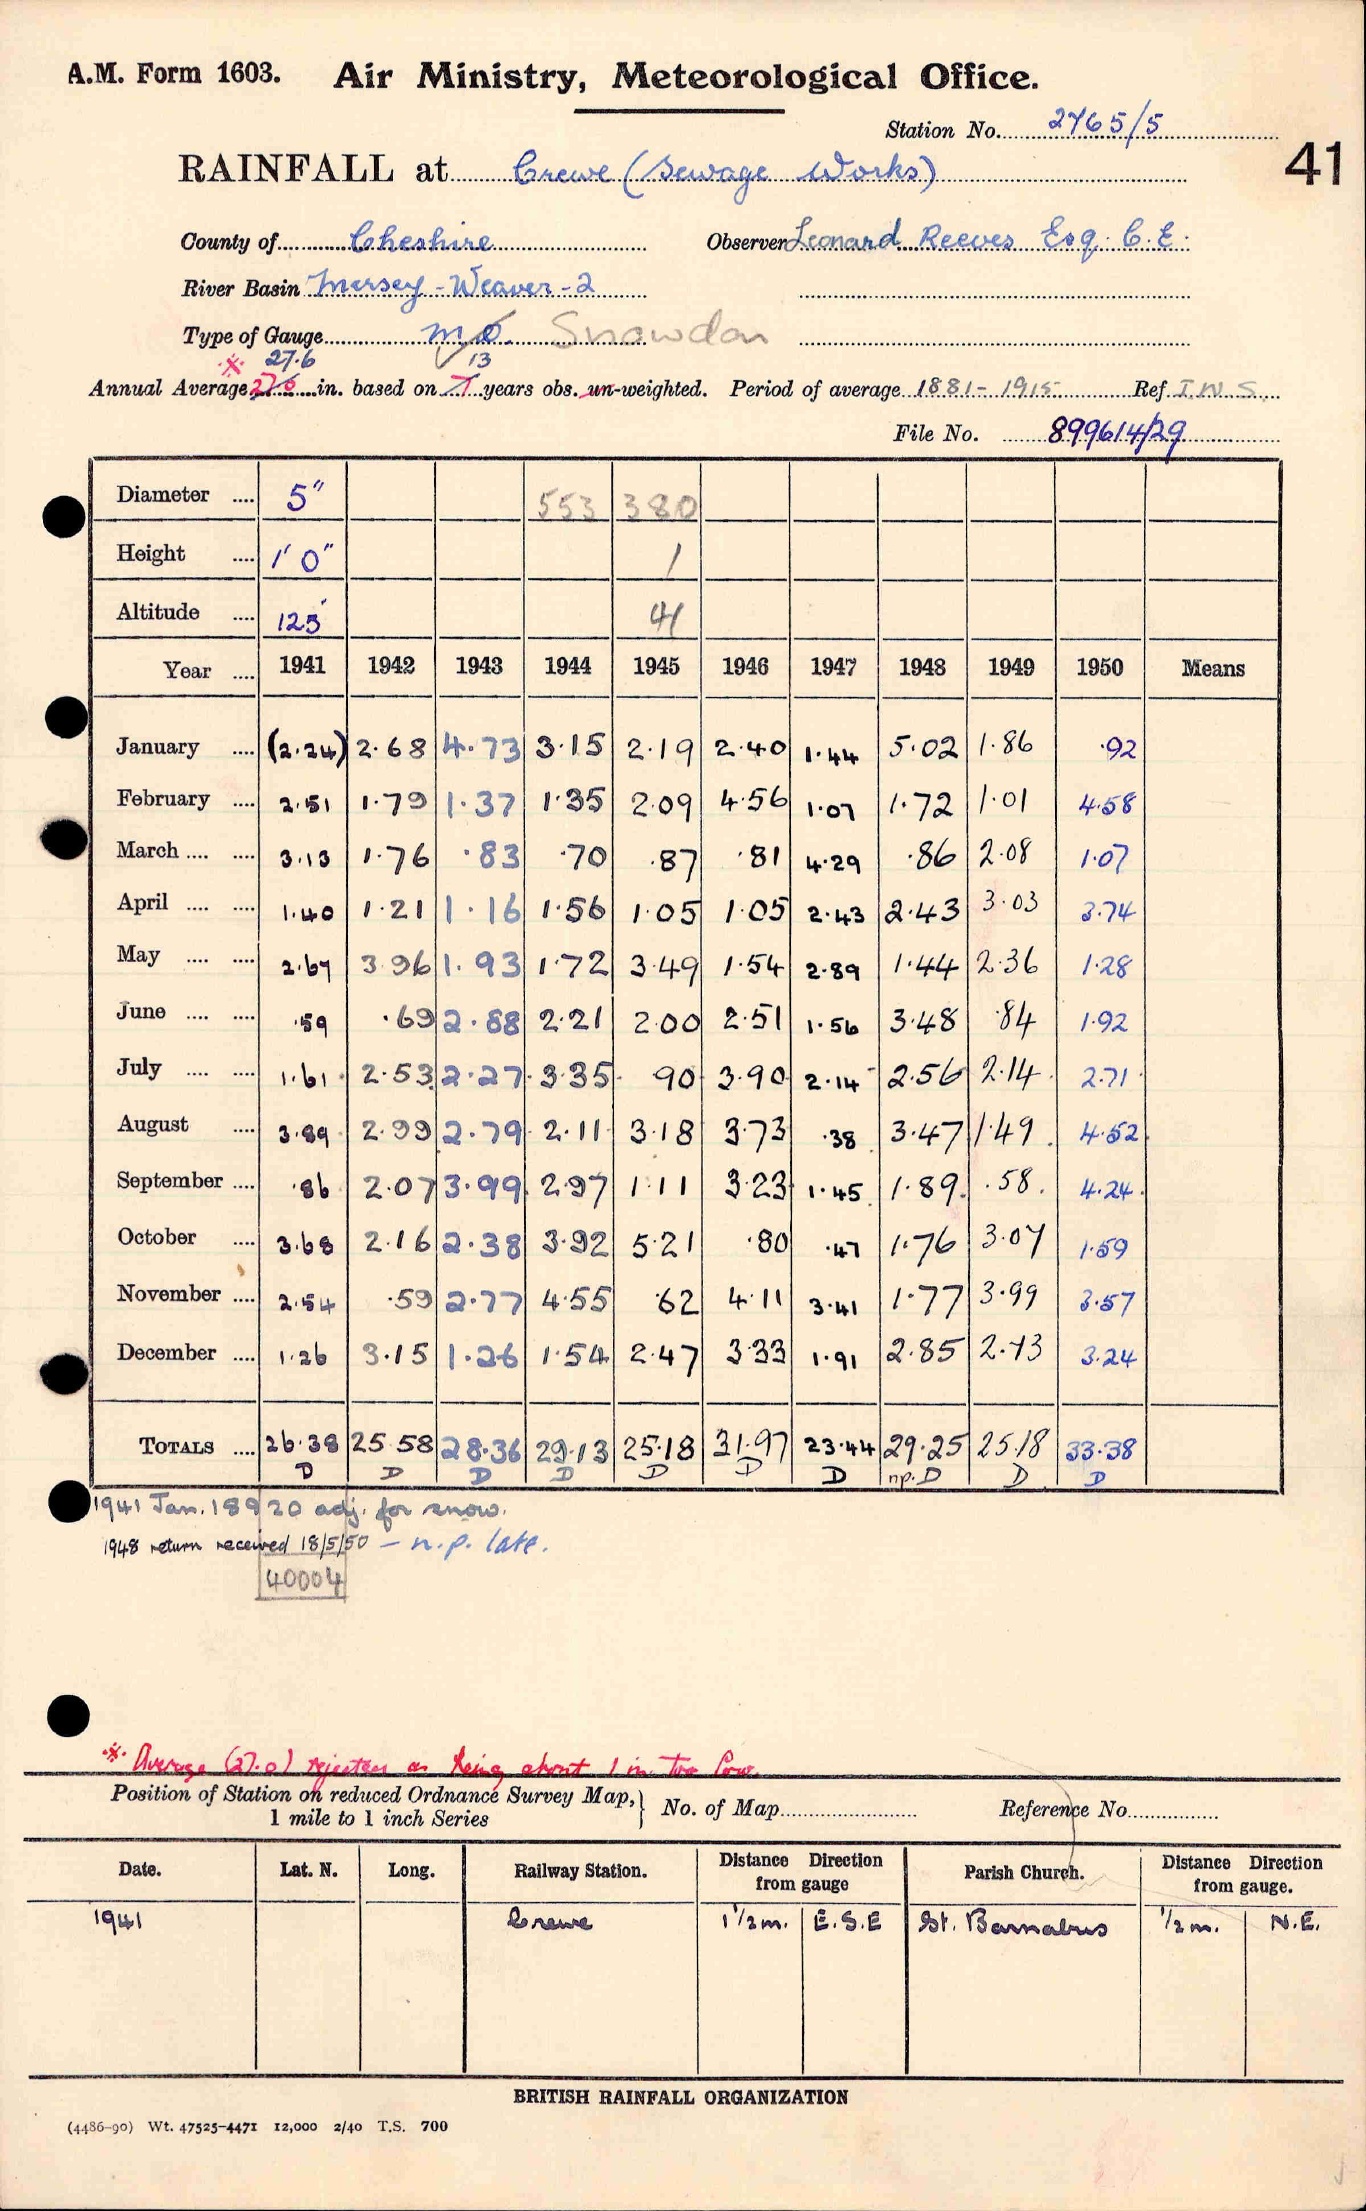 A.M. Form 1603. Air Ministry, Meteorological Office.
Station No. 2765/5
41
RAINFALL at Crewe (Sewage Works)
County of Cheshire Observer Leonard Reeves Esq. C.E.
River Basin Mersey - Weaver - 2
Type of Gauge M.O. Snowdon
※ 27.6 13
Annual Average 27.0 in. based on 7 years obs. un-weighted. Period of average 1881 - 1915 Ref I.W.S.
File No. 899614/29
Diameter .... 5" 553 380
Height .... 1' 0" 1
Altitude .... 125' 41
Year .... 1941 1942 1943 1944 1945 1946 1947 1948 1949 1950 Means
January .... (2.24) 2.68 4.73 3.15 2.19 2.40 1.44 5.02 1.86 .92
February .... 2.51 1.79 1.37 1.35 2.09 4.56 1.07 1.72 1.01 4.58
March .... .... 3.13 1.76 .83 .70 .87 .81 4.29 .86 2.08 1.07
April .... .... 1.40 1.21 1.16 1.56 1.05 1.05 2.43 2.43 3.03 3.74
May .... .... 2.67 3.96 1.93 1.72 3.49 1.54 2.89 1.44 2.36 1.28
June .... .... .59 .69 2.88 2.21 2.00 2.51 1.56 3.48 .84 1.92
July .... .... 1.61 2.53 2.27 3.35 .90 3.90 2.14 2.56 2.14 2.71
August .... 3.89 2.99 2.79 2.11 3.18 3.73 .38 3.47 1.49 4.52
September .... .86 2.07 3.99 2.97 1.11 3.23 1.45 1.89 .58 4.24
October .... 3.68 2.16 2.38 3.92 5.21 .80 .47 1.76 3.07 1.59
November .... 2.54 .59 2.77 4.55 .62 4.11 3.41 1.77 3.99 3.57
December .... 1.26 3.15 1.26 1.54 2.47 3.33 1.91 2.85 2.73 3.24
TOTALS .... 26.38 25.58 28.36 29.13 25.18 31.97 23.44 29.25 25.18 33.38
D D D D D D D np. D D D
1941 Jan. 18 & 20 adj. for snow.
1948 return received 18/5/50 - n.p. late.
40004
※ Average (27.0) rejected as being about 1 in. too low.
Position of Station on reduced Ordnance Survey Map, } No. of Map Reference No.
1 mile to 1 inch Series
Date. Lat. N. Long. Railway Station. Distance Direction from gauge Parish Church. Distance Direction from gauge.
1941 Crewe 1 1/2 m. E.S.E St. Barnabus 1/2 m. N.E.
BRITISH RAINFALL ORGANIZATION
(4486-90) Wt. 47525-4471 12,000 2/40 T.S. 700